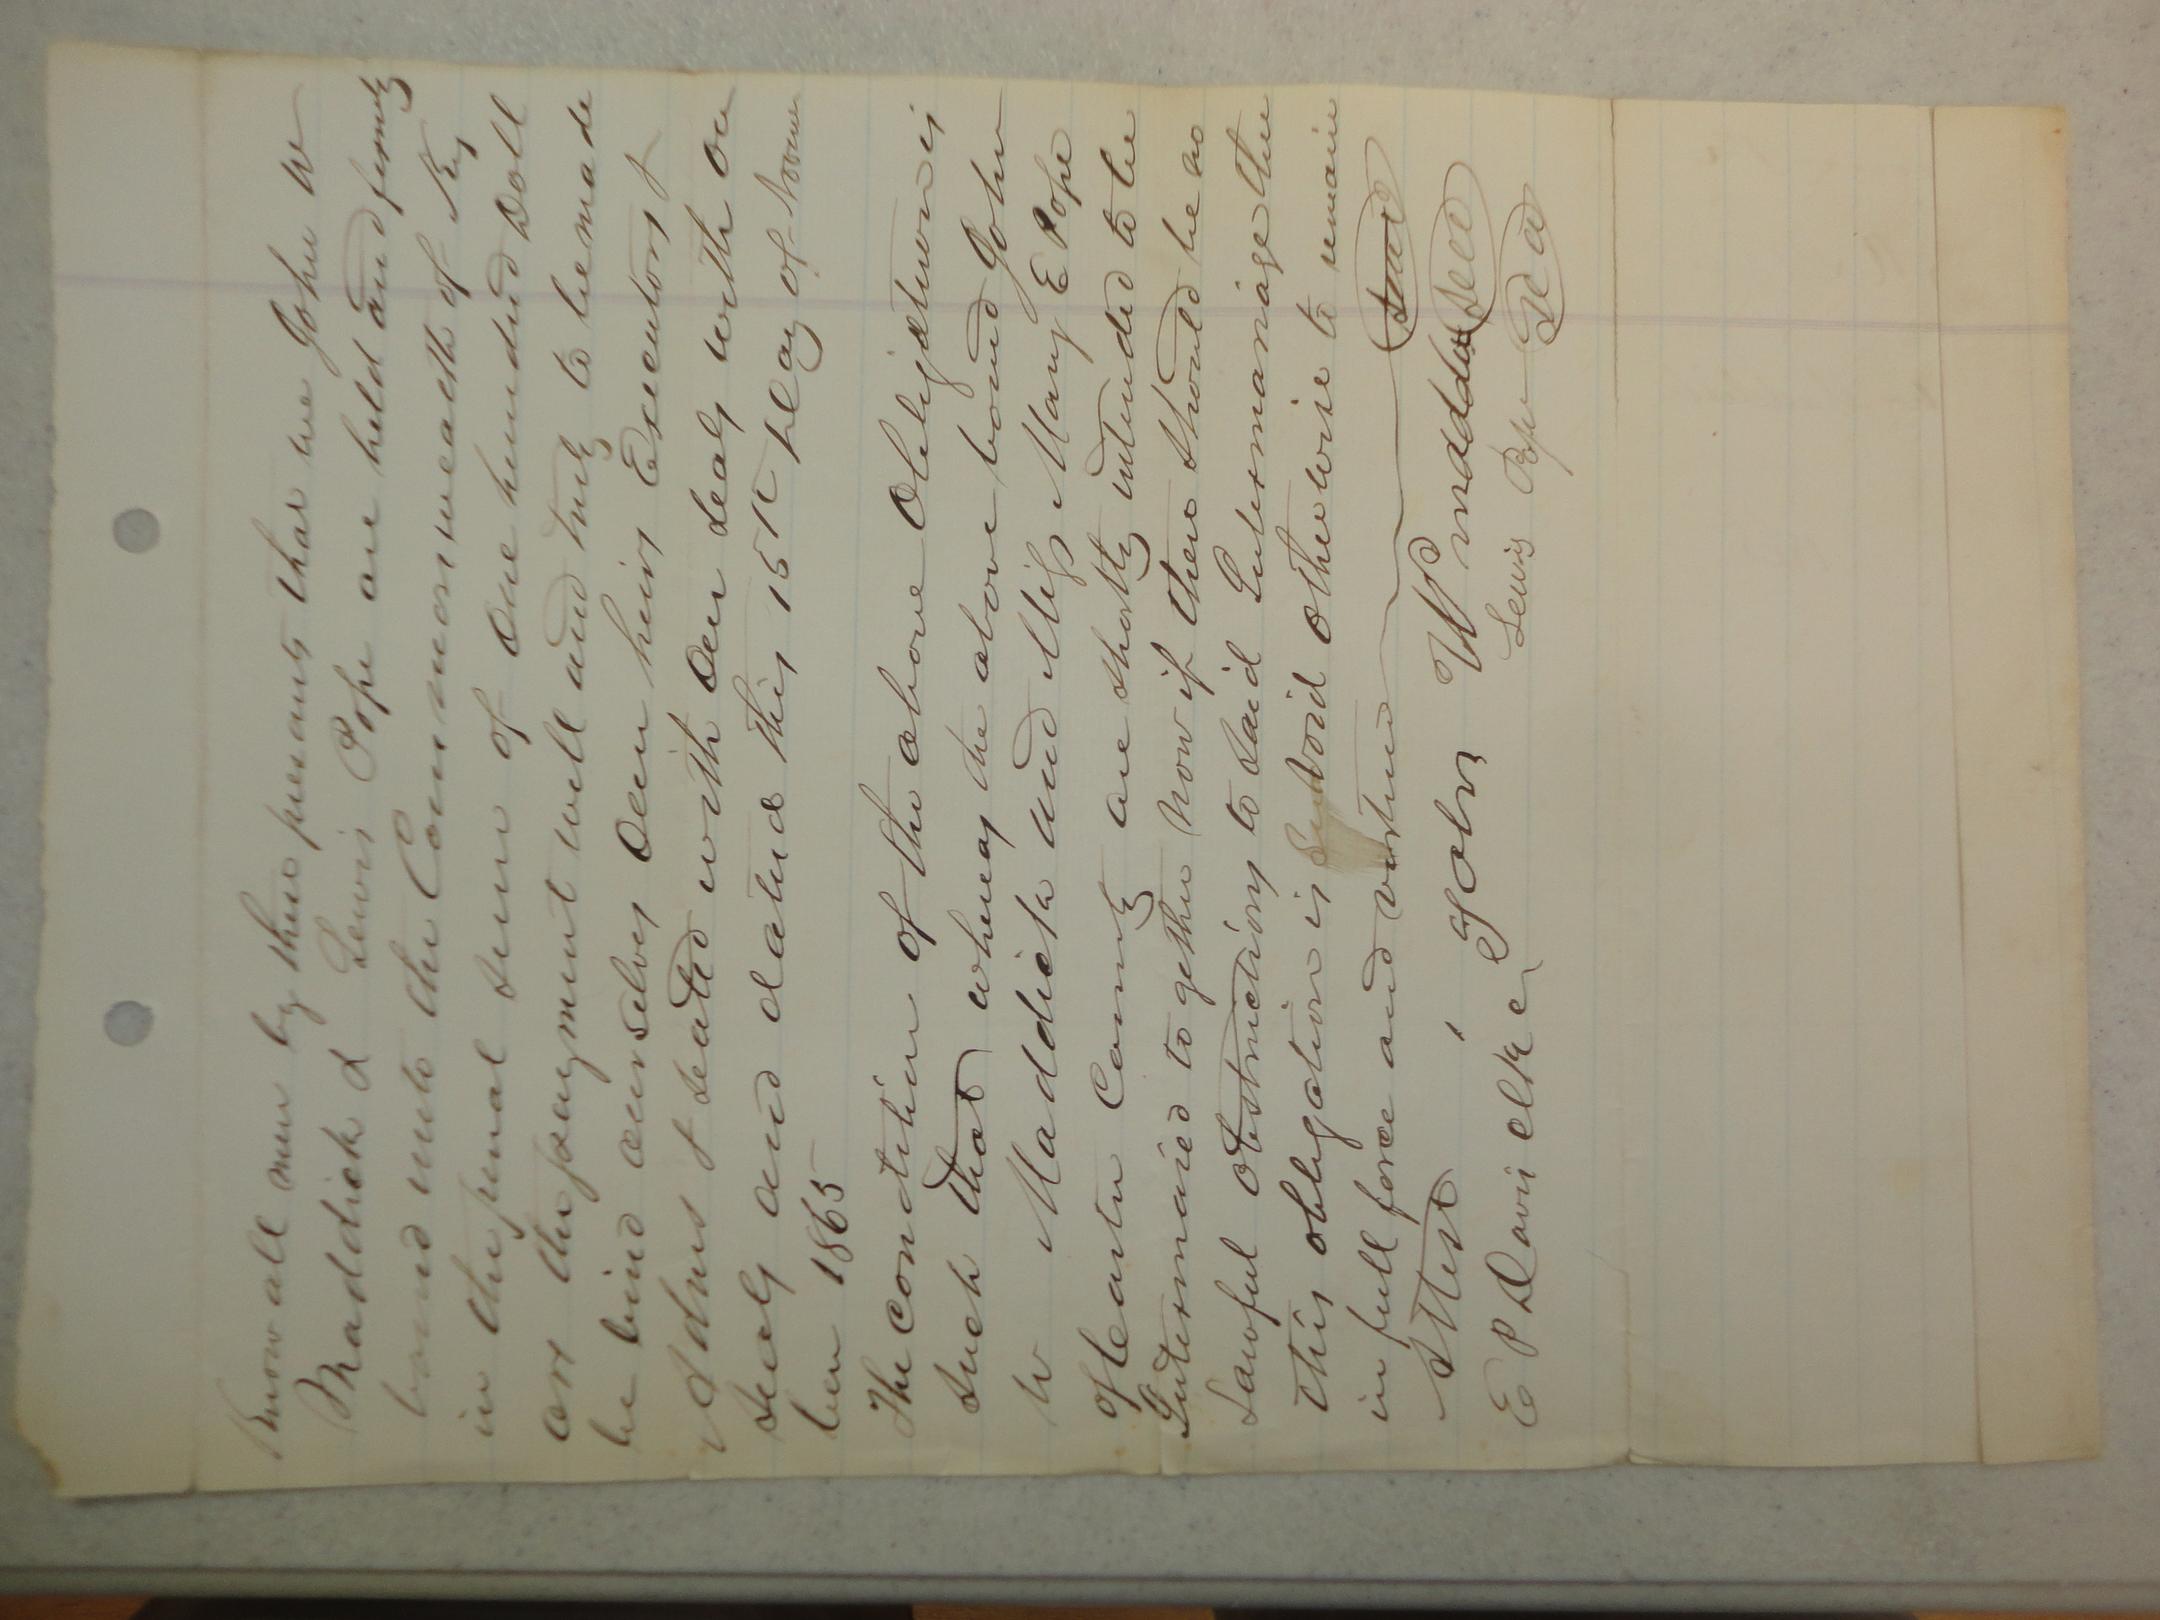 Know all men by these presants that we John W
Maddick & Lewis Pope are held and firmly
bound unto the Commonweath of Ky
in the penal sum of One hundred Doll
ars the payment well and truly to be made
we bind ourselves Our heirs Executors &
Adms & sealed with Our seals with Our
seals and dated this 15th Day of Novem
ber 1865
The condition of the above Obligation is
such that whereas the above bound John
W Maddick and Miss Mary E Pope
of County are shortly intended to be
Intermaried to gether Now if there should be no
Lawful obstructions to said Intermariage then
this obligation is void otherwise to remain
in full force and virtue Seal
Attest John W maddox Seal
E P Davis clk Lewis Pope Seal